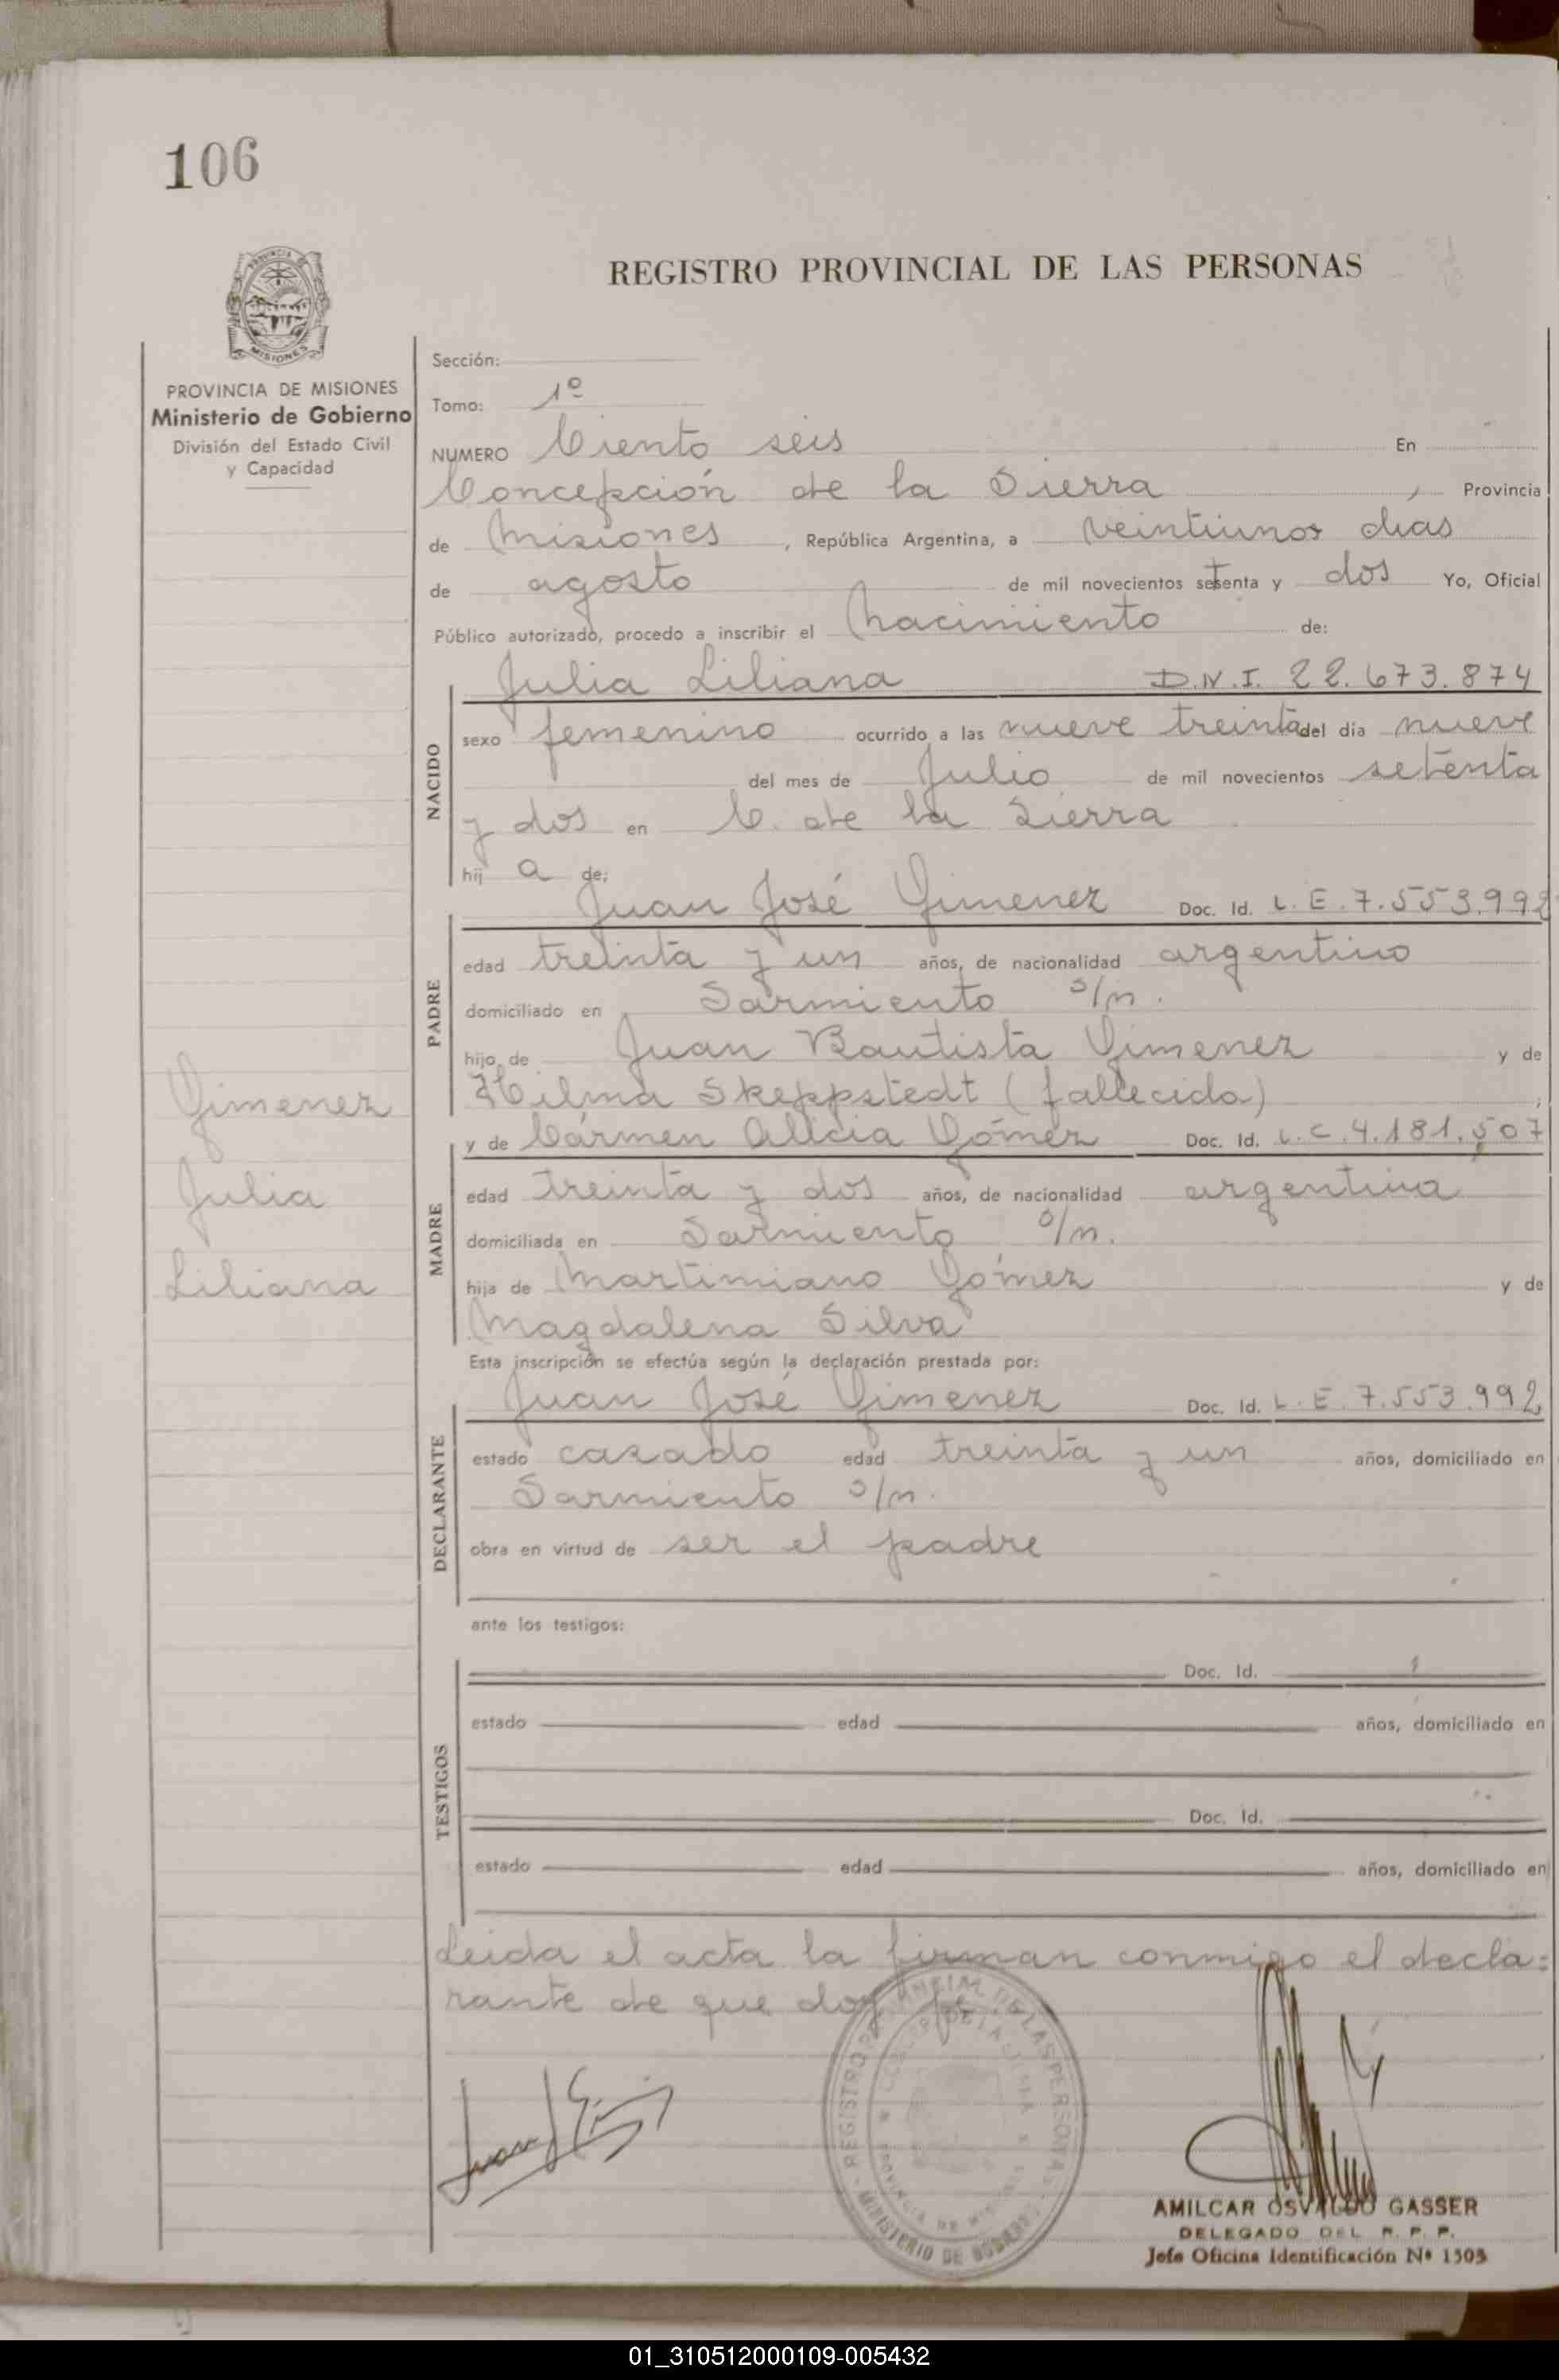 106
PROVINCIA DE MISIONES
MISIONES
PROVINCIA DE MISIONES
Ministerio de Gobierno
División del Estado Civil
y Capacidad
Gimenez
Julia
Liliana
REGISTRO PROVINCIAL DE LAS PERSONAS
Sección:
Tomo: 1º
NUMERO Ciento seis En
Concepción de la Sierra , Provincia
de Misiones , República Argentina, a veintiunos dias
de agosto de mil novecientos setenta y dos Yo, Oficial
Público autorizado, procedo a inscribir el nacimiento de:
NACIDO
Julia Liliana D.N.I. 22.673.874
sexo femenino ocurrido a las nueve treinta del día nueve
del mes de Julio de mil novecientos setenta
y dos en C. de la Sierra
hij a de:
PADRE
Juan José Gimenez Doc. Id. L.E. 7.553.992
edad treinta y un años, de nacionalidad argentino
domiciliado en Sarmiento s/n.
hijo de Juan Bautista Gimenez y de
Hilma Skeppstedt (fallecida) ;
MADRE
y de Cármen Alicia Gómez Doc. Id. L.C. 4.181.507
edad treinta y dos años, de nacionalidad argentina
domiciliada en Sarmiento s/n.
hija de Martimiano Gómez y de
Magdalena Silva
Esta inscripción se efectúa según la declaración prestada por:
DECLARANTE
Juan José Gimenez Doc. Id. L.E. 7.553.992
estado casado edad treinta y un años, domiciliado en
Sarmiento s/n.
obra en virtud de ser el padre
ante los testigos:
TESTIGOS
Doc. Id.
estado edad años, domiciliado en
Doc. Id.
estado edad años, domiciliado en
Leida el acta la firman conmigo el decla=
rante de que doy fe.
REGISTRO PROVINCIAL DE LAS PERSONAS
PROVINCIA DE MISIONES
MINISTERIO DE GOBIERNO
AMILCAR OSVALDO GASSER
DELEGADO DEL R. P. P.
Jefe Oficina Identificación Nº 1503
01_310512000109-005432